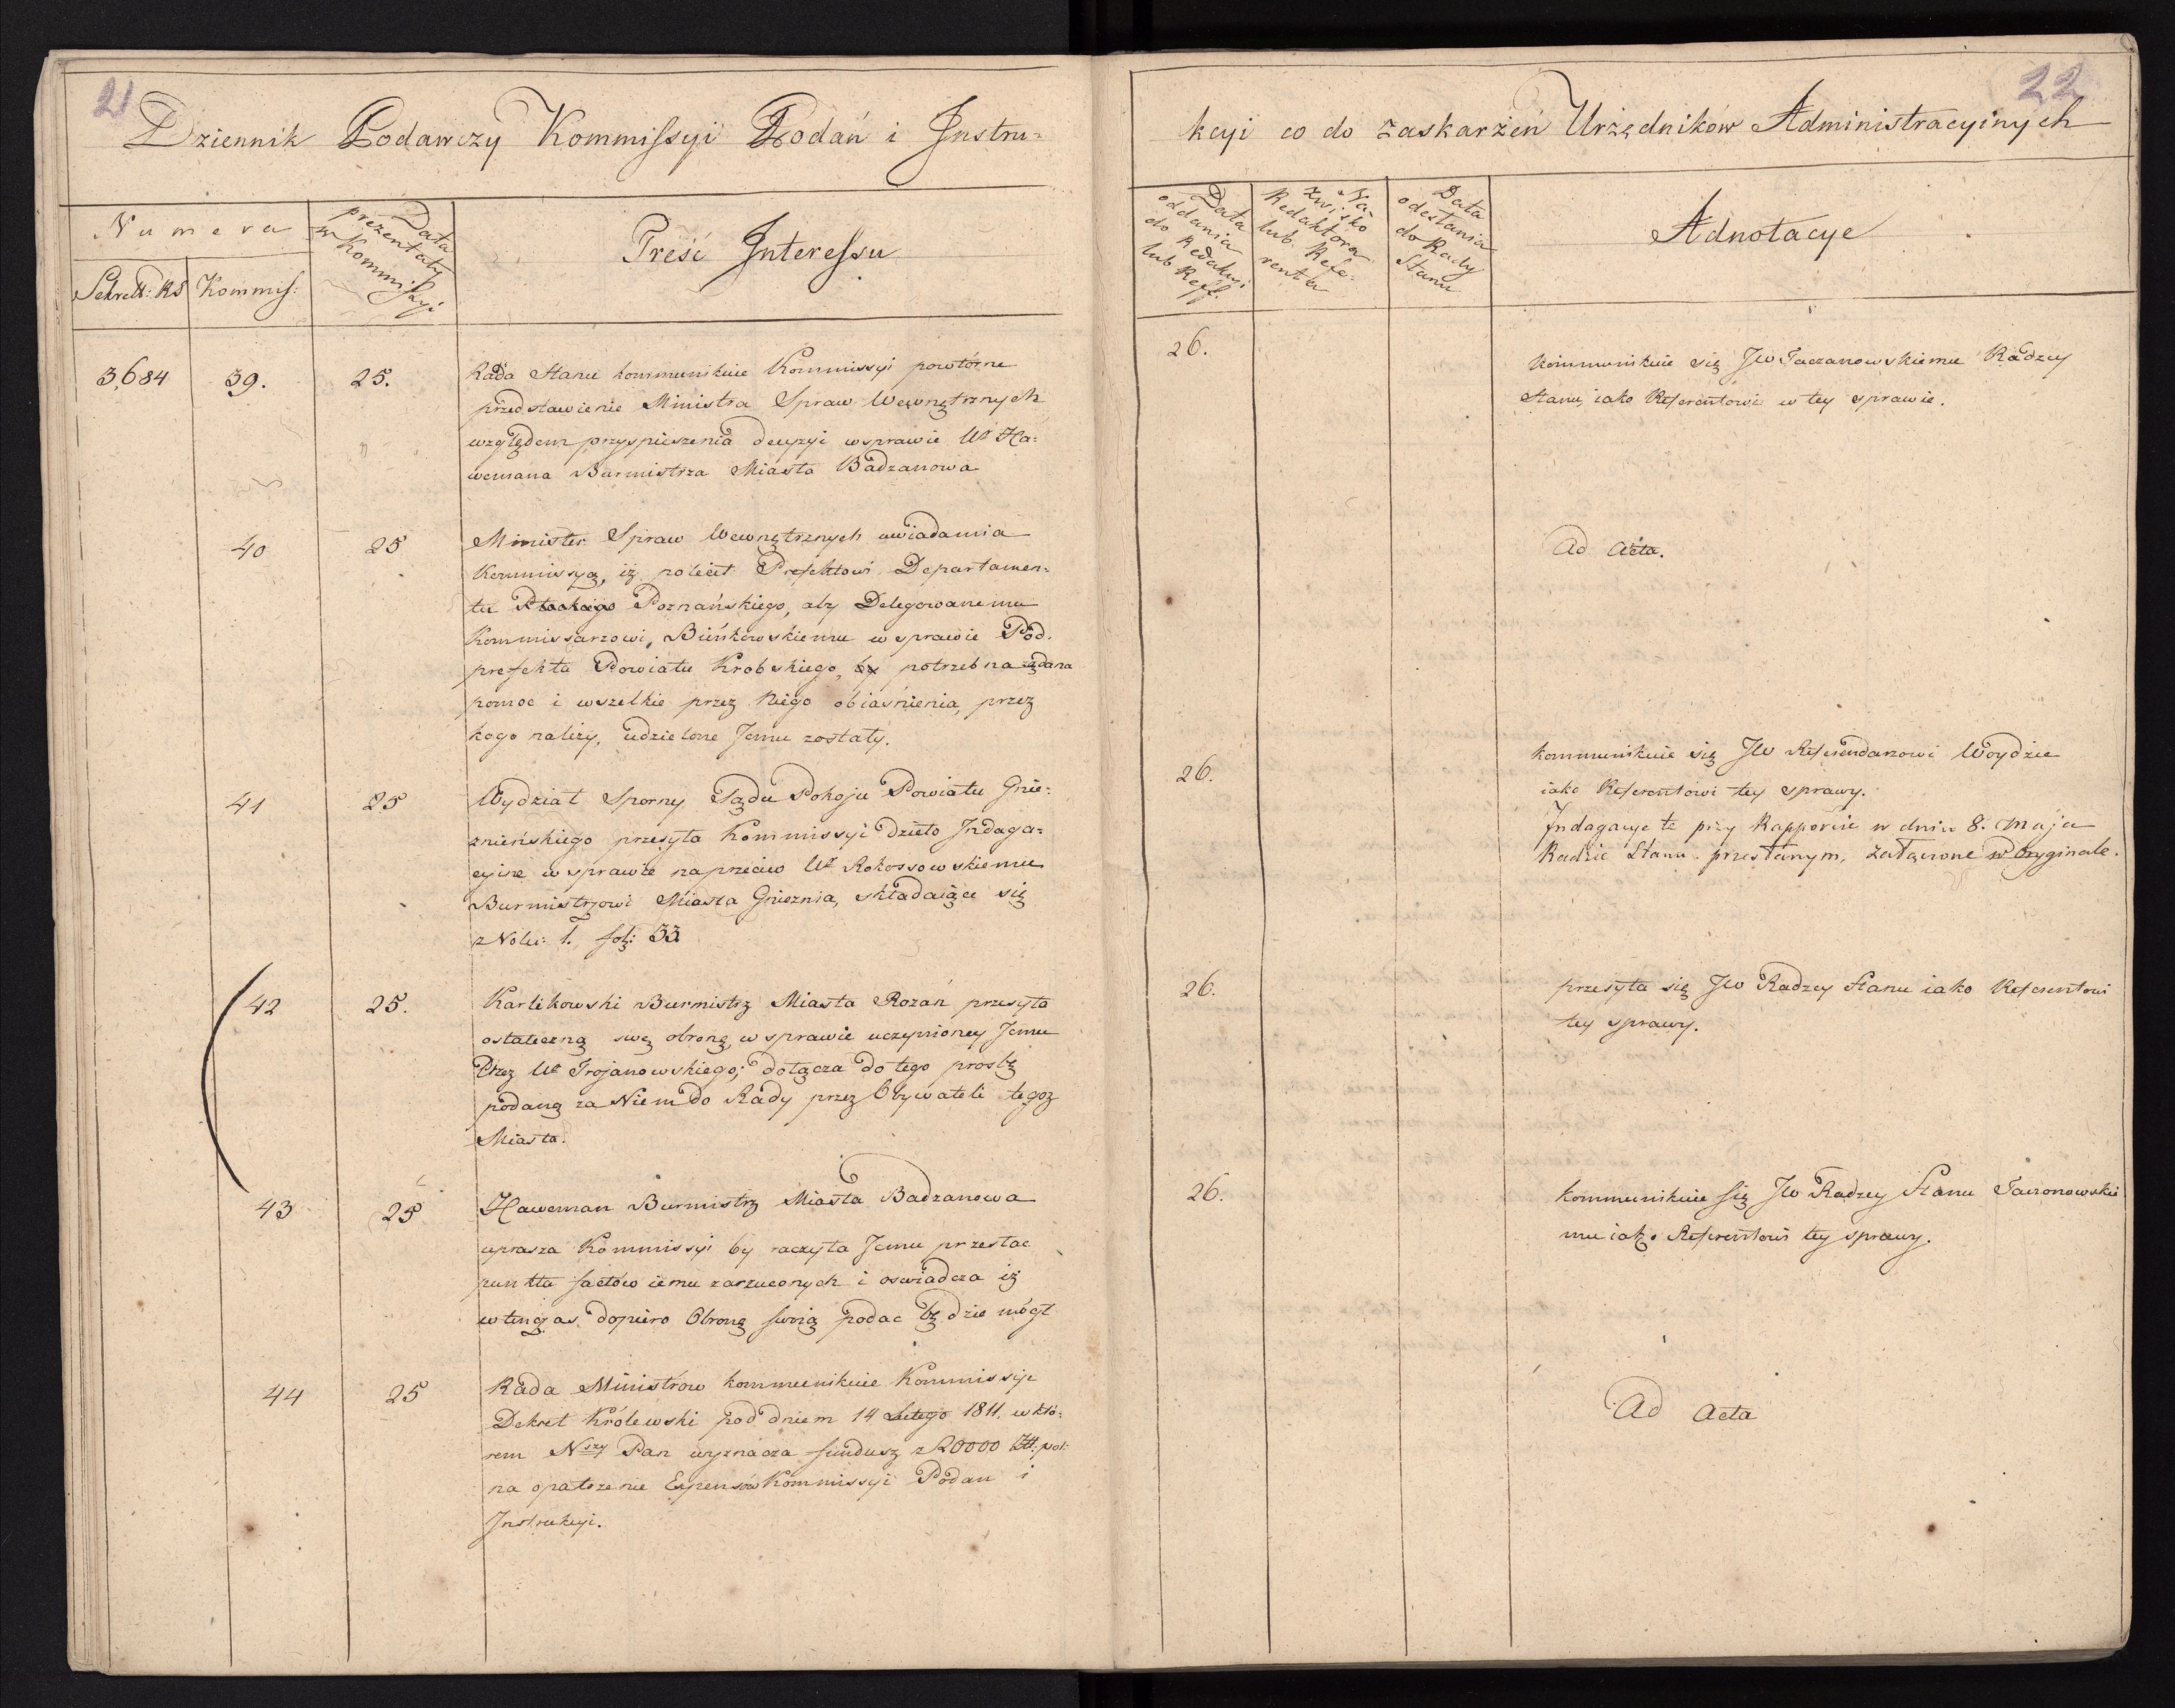 21
Dziennik Podawczy Kommissyi Podań i Instru=
Numera
Sekrett: RS
Kommis:
Data
prezentaty
w Kommissyi
Treść Interessu
3,684
39.
25.
Rada Stanu kommunikuie Kommissyi powtórne
przedstawienie Ministra Spraw Wewnętrznych
względem przyspieszenia decyzyi w sprawie Ur Ha=
wemana Burmistrza Miasta Badzanowa
40
25
Minister Spraw Wewnętrznych uwiadamia
Kommissyą, iż polecił Prefektowi Departamen=
tu Płockiego Poznańskiego, aby Delegowanemu
Kommissarzowi, Bieńkowskiemu w sprawie Pod.
prefekta Powiatu Krobskiego, by potrzebna żądana
pomoc i wszelkie przez Niego obiaśnienia, przez
kogo należy, udzielone Jemu zostały.
41
25
Wydział Sporny Sądu Pokoju Powiatu Gnie=
znieńskiego przesyła Kommissyi dzieło Indaga=
cyine w sprawie naprzeciw Ur Rokossowskiemu
Burmistrzowi Miasta Gniezna, składaiące się
z Nolu: 1. fol: 33
42
25.
Karlikowski Burmistrz Miasta Rozan przesyła
ostateczną swą obronę, w sprawie uczynioney Jemu
Przez Ur Trojanowskiego; dołącza do tego prosbę
podaną za Niem do Rady przez Obywateli tegoz
Miasta.
43
25
Haweman Burmistrz Miasta Badzanowa
uprasza Kommissyi by raczyła Jemu przesłac
punkta factów iemu zarzuconych i oswiadcza iż
wtenczas dopiero Obronę swoią podac będzie mógł
44
25
Rada Ministrow kommunikuie Kommissyi
Dekret Królewski pod dniem 14 Lutego 1811. w któ=
rem Nszy Pan wyznacza fundusz z 20000 Zł: pol:
na opatrzenie Expensów Kommissyi Podan i
Instrukcyi.
22
kcyi co do zaskarżeń Urzędników Administracyinych
Data
oddania
do Redakcyi
lub Reff.
Na=
zwisko
Redaktora
lub Refe=
renta
Data
odesłania
do Rady
Stanu
Adnotacye
26.
kommunikuie się JW Taczanowskiemu Radzcy
Stanu, iako Referentowi w tey sprawie.
Ad Acta.
26.
kommunikuie się JW Referendarzowi Woydzie
iako Referentowi tey sprawy.
Indagacye te przy Rapporcie w dniu 8. Maja
Radzie Stanu przesłanym, załączone w Oryginale.
26.
przesyła się JW Radzcy Stanu iako Referentowi
tey sprawy.
26.
kommunikuie się JW Radzcy Stanu Taczonowskie
mu iako Referentowi tey sprawy.
Ad Acta